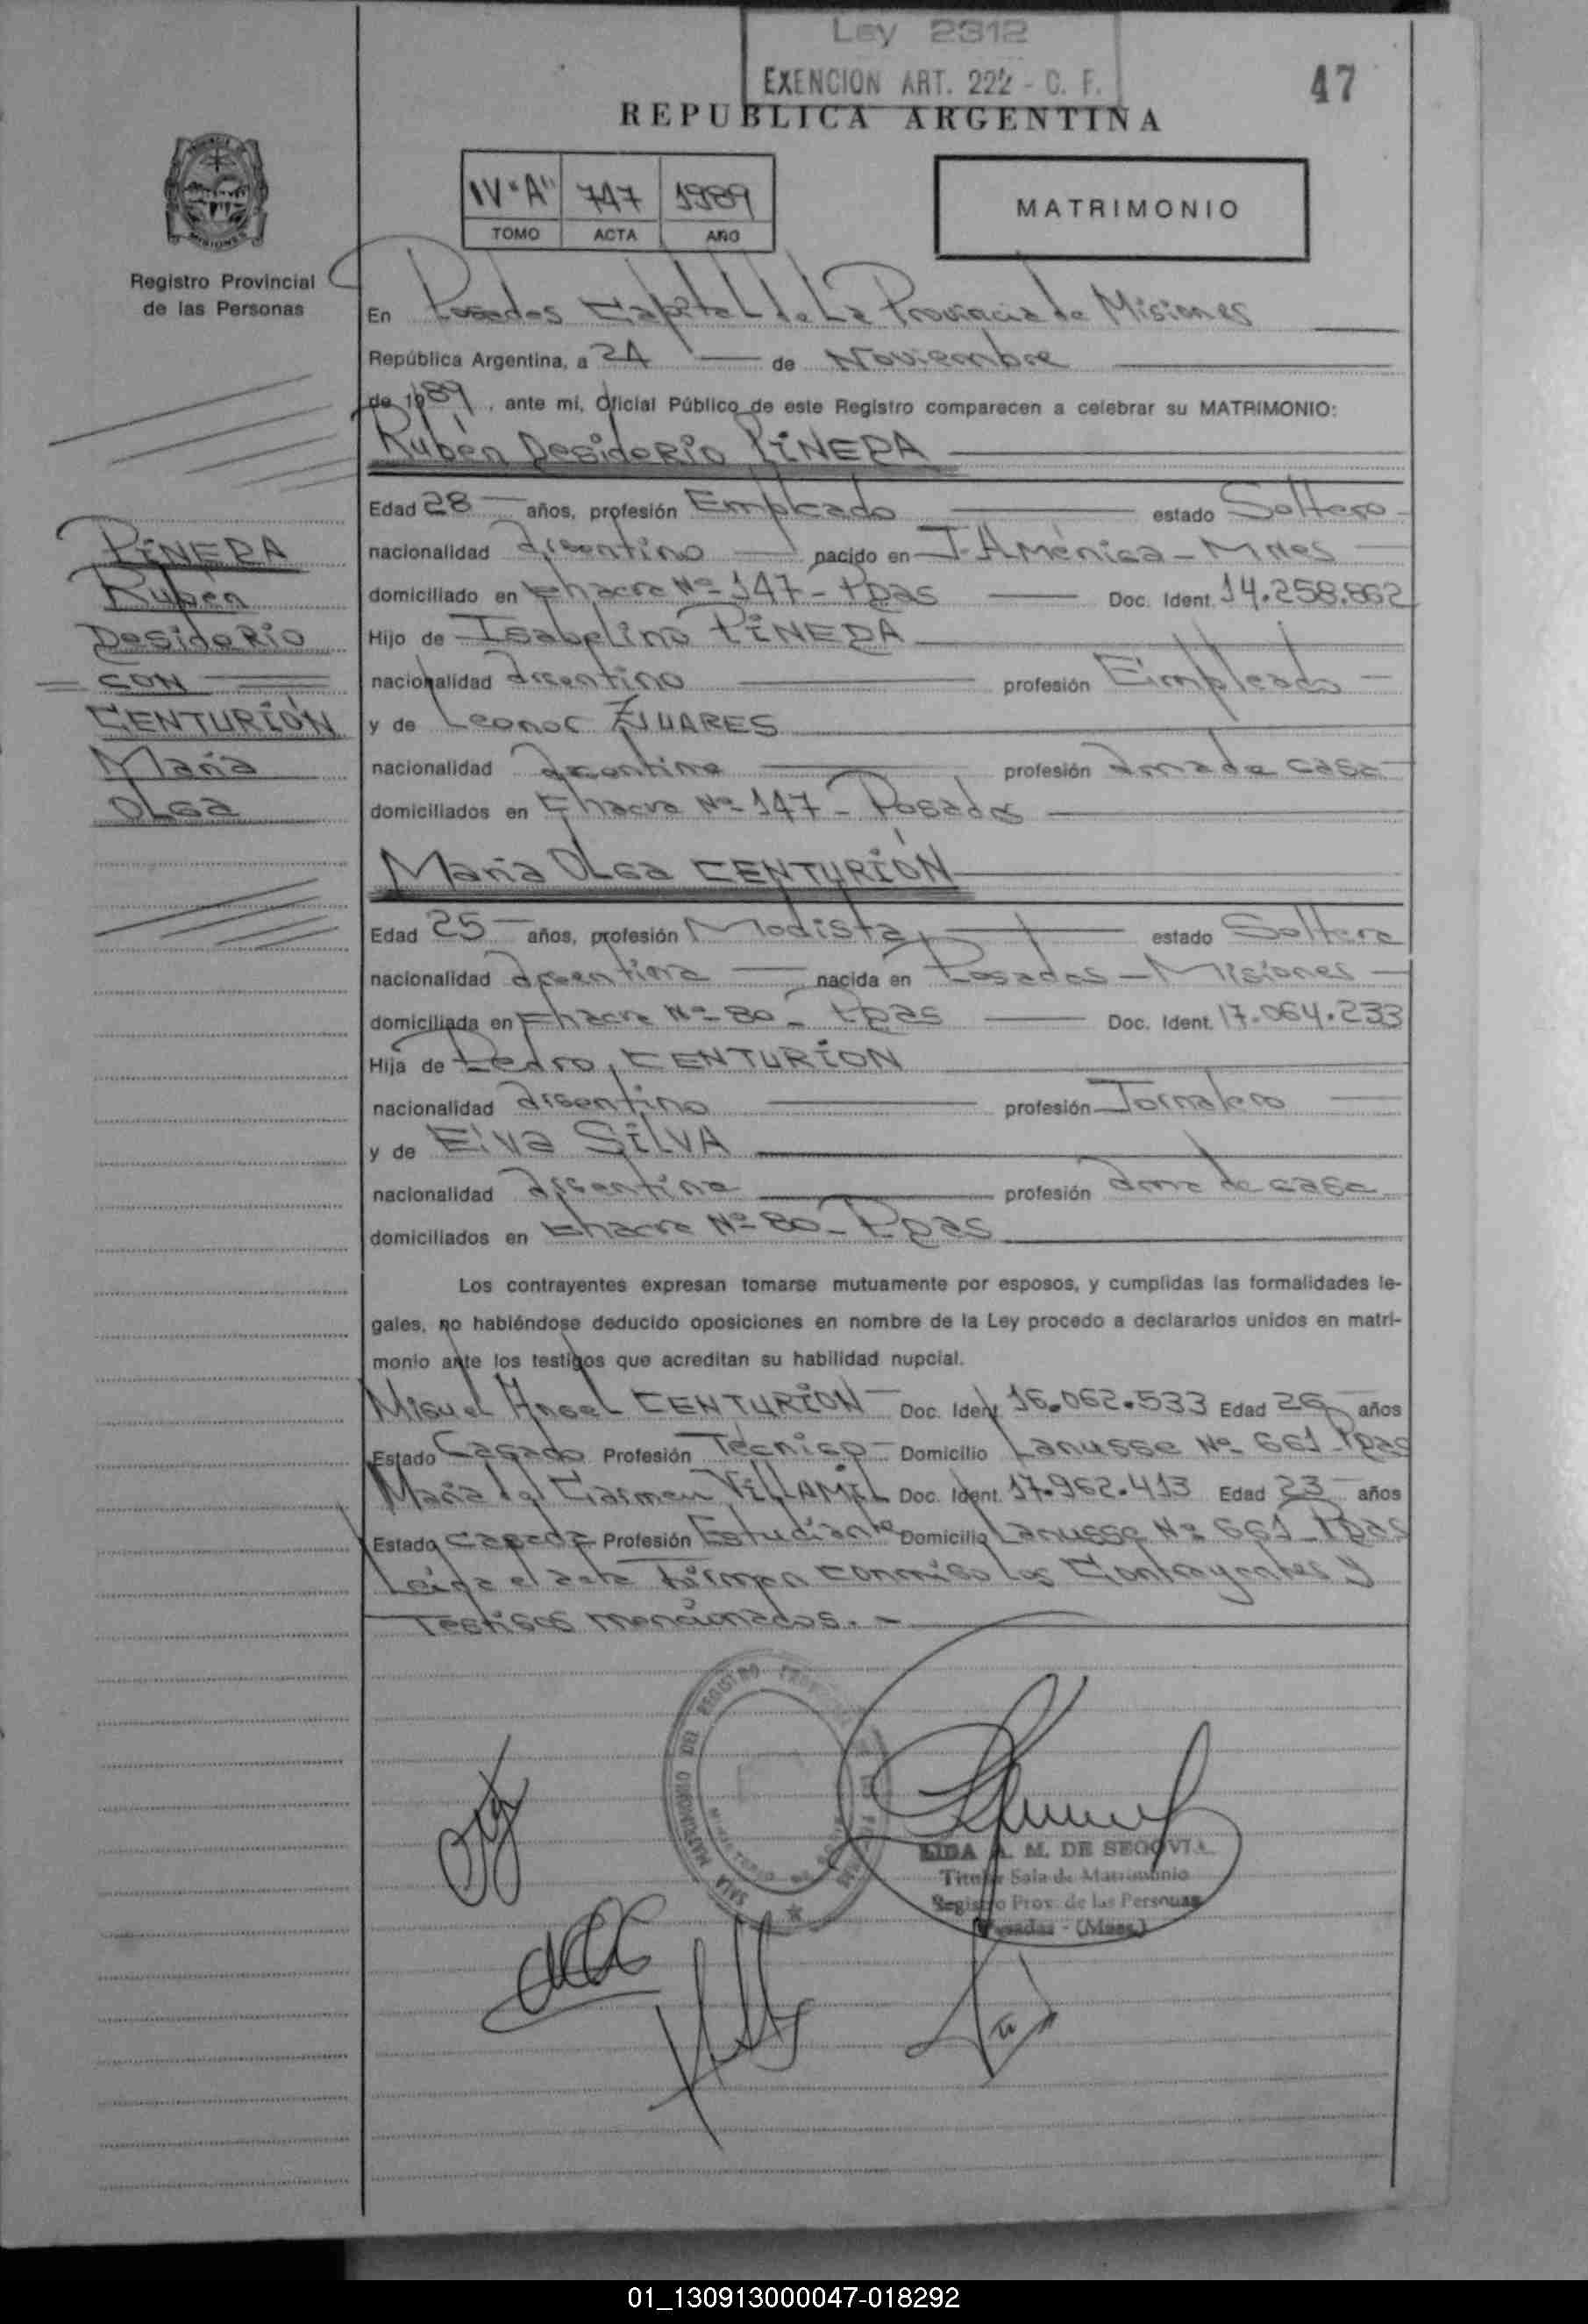 Ley 2312
EXENCION ART. 222 - C. F.
47
REPUBLICA ARGENTINA
IV "A" 747 1989
TOMO ACTA AÑO
MATRIMONIO
Registro Provincial
de las Personas
En Posadas Capital de La Provincia de Misiones
República Argentina, a 24 de Noviembre
de 1989, ante mi, Oficial Público de este Registro comparecen a celebrar su MATRIMONIO:
Rubén Desiderio PINEDA
Edad 28 años, profesión Empleado estado Soltero
nacionalidad Argentino nacido en J. América - Mnes
domiciliado en Chacra Nº 147 - Pdas Doc. Ident. 14.258.862
Hijo de Isabelino PINEDA
nacionalidad Argentino profesión Empleado
y de Leonor
nacionalidad Argentina profesión Ama de casa
domiciliados en Chacra Nº 147 - Posadas
PINEDA
Rubén
Desiderio
CON
CENTURIÓN
María
Olga
María Olga CENTURIÓN
Edad 25 años, profesión Modista estado Soltera
nacionalidad Argentina nacida en Posadas - Misiones
domiciliada en Chacra Nº 80 - Pdas Doc. Ident. 17.064.233
Hija de Pedro CENTURIÓN
nacionalidad Argentino profesión Jornalero
y de Elva SILVA
nacionalidad Argentina profesión Ama de casa
domiciliados en Chacra Nº 80 - Pdas
Los contrayentes expresan tomarse mutuamente por esposos, y cumplidas las formalidades le-
gales, no habiéndose deducido oposiciones en nombre de la Ley procedo a declararlos unidos en matri-
monio ante los testigos que acreditan su habilidad nupcial.
Miguel Angel CENTURIÓN Doc. Ident. 16.062.533 Edad 26 años
Estado Casado Profesión Técnico Domicilio Lanusse Nº 661 - Pdas
María del Carmen VILLAMIL Doc. Ident. 17.962.413 Edad 23 años
Estado Casada Profesión Estudiante Domicilio Lanusse Nº 661 - Pdas
Leída el acta firman conmigo los Contrayentes y
Testigos mencionados.-
SALA MATRIMONIO DEL REGISTRO
LIDA A. M. DE SEGOVIA
Titular Sala de Matrimonio
Registro Prov. de las Personas
Posadas - (Mnes.)
01_130913000047-018292